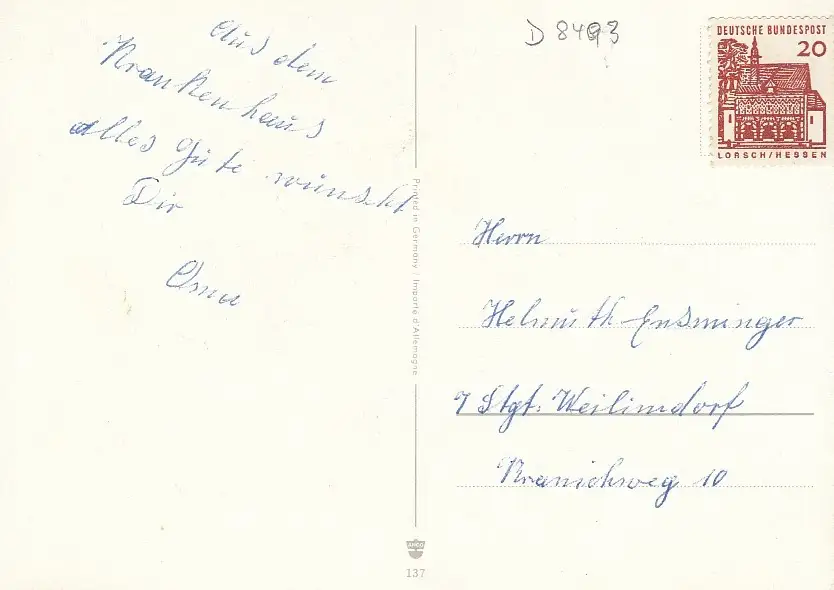 Aus dem
Krankenhaus
alles Gute wünscht
Dir
Oma
Printed in Germany / Importé d'Allemagne
137
D 8493
DEUTSCHE BUNDESPOST
20
LORSCH/HESSEN
Herrn
Helmuth Ensminger
7 Stgt: Weilimdorf
Kranichweg 10